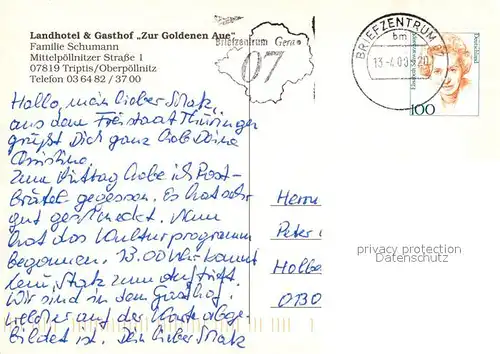 Landhotel & Gasthof „Zur Goldenen Aue"
Familie Schumann
Mittelpöllnitzer Straße 1
07819 Triptis/Oberpöllnitz
Telefon 03 64 82 / 37 00
Briefzentrum Gera
07
BRIEFZENTRUM
bm
13-4.00
20
Deutschland
100
Hallo, mein lieber Matz,
aus dem Freistaat Thüringen
grüßt Dich ganz lieb Deine
Christine.
Zum Mittag habe ich Rost-
brätel gegessen. Es hat sehr
gut geschmeckt. Nun
hat das Kulturprogramm
begonnen. 13.00 Uhr kommt
zum Auftritt.
Wir sind in dem Gasthof,
welcher auf der Karte abge-
bildet ist. Dein lieber Matz
Herrn
Peter
Holbe
0130
privacy protection
Datenschutz